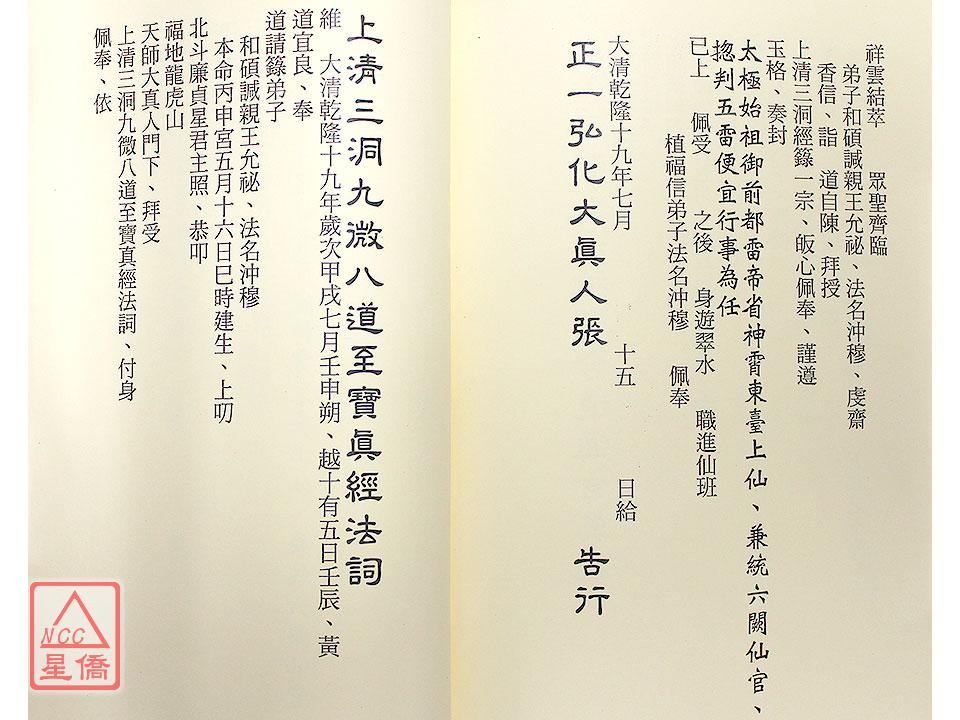 祥雲結萃　眾聖齊臨
弟子和碩諴親王允祕、法名沖穆、虔齋
香信、詣　道自陳、拜授
上清三洞經籙一宗、皈心佩奉、謹遵
玉格、奏封
太極始祖御前都雷帝省神霄東臺上仙、兼統六闕仙官、
揔判五雷便宜行事為任
已上　佩受　之後　身遊翠水　職進仙班
植福信弟子法名沖穆　佩奉
大清乾隆十九年七月　十五　日給
正一弘化大眞人張　告行
上清三洞九微八道至寶眞經法詞
維　大清乾隆十九年歲次甲戌七月壬申朔、越十有五日壬辰、黃
道宜良、奉
道請籙弟子
和碩諴親王允祕、法名沖穆
本命丙申宮五月十六日巳時建生、上叨
北斗廉貞星君主照、恭叩
福地龍虎山
天師大真人門下、拜受
上清三洞九微八道至寶真經法詞、付身
佩奉、依
NCC
星僑